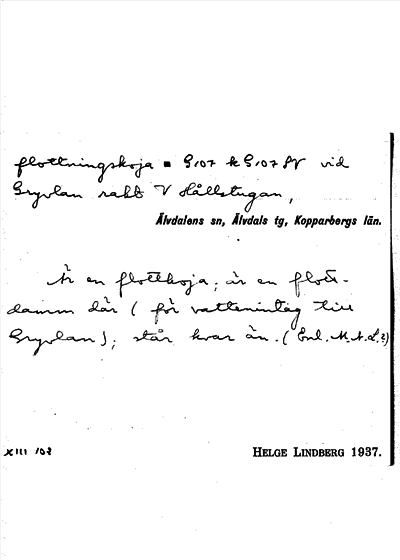 flottningskoja ▪ G107 k G107 SV vid
Gryvlan rakt V Hållstugan,
Älvdalens sn, Älvdals tg, Kopparbergs län.
Är en flottkoja; är en flott-
damm där (för vattenintag till
Gryvlan); står kvar än. (Enl. M.A.L.?)
XIII 102
HELGE LINDBERG 1937.